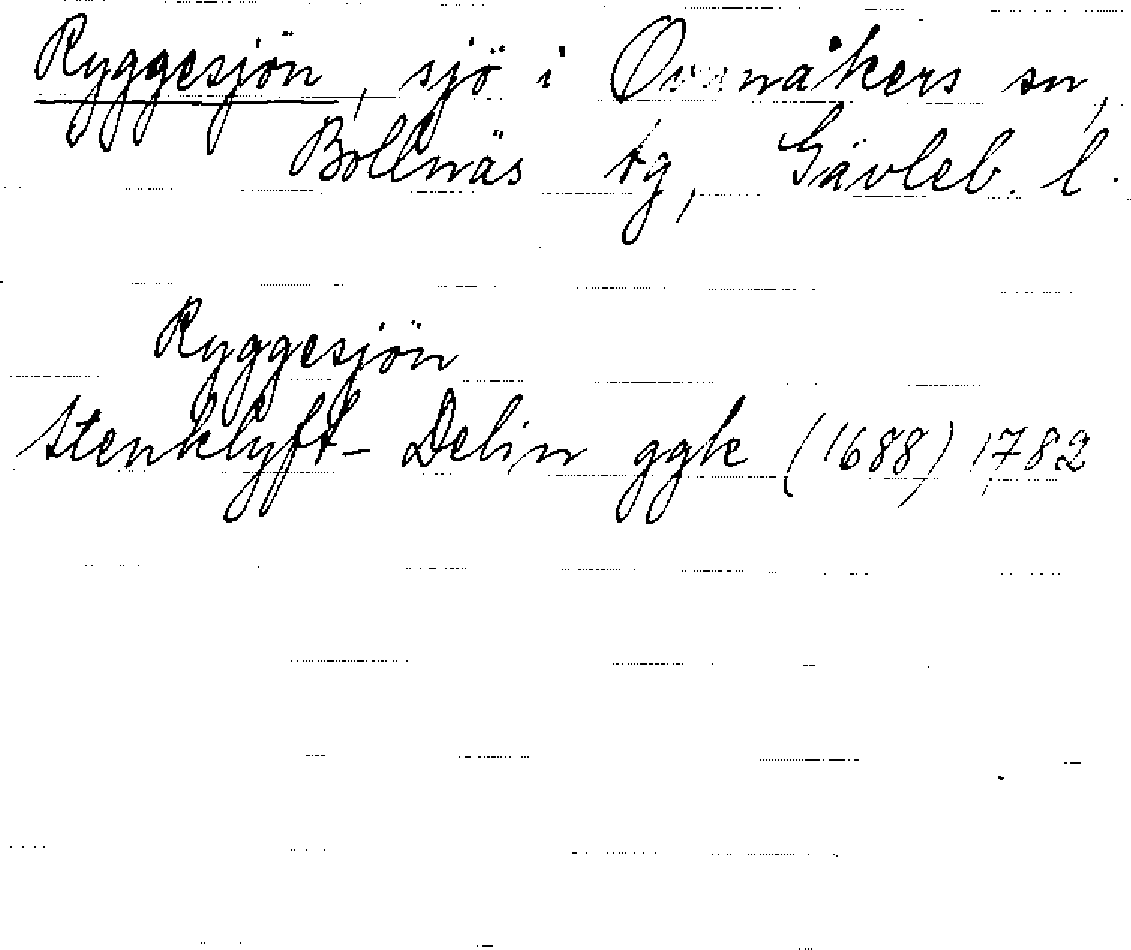 Ryggesjön, sjö i Ovanåkers sn,
Bollnäs tg, Gävleb. l.
Ryggesjön
Stenklyft-Delin ggk (1688) 1782